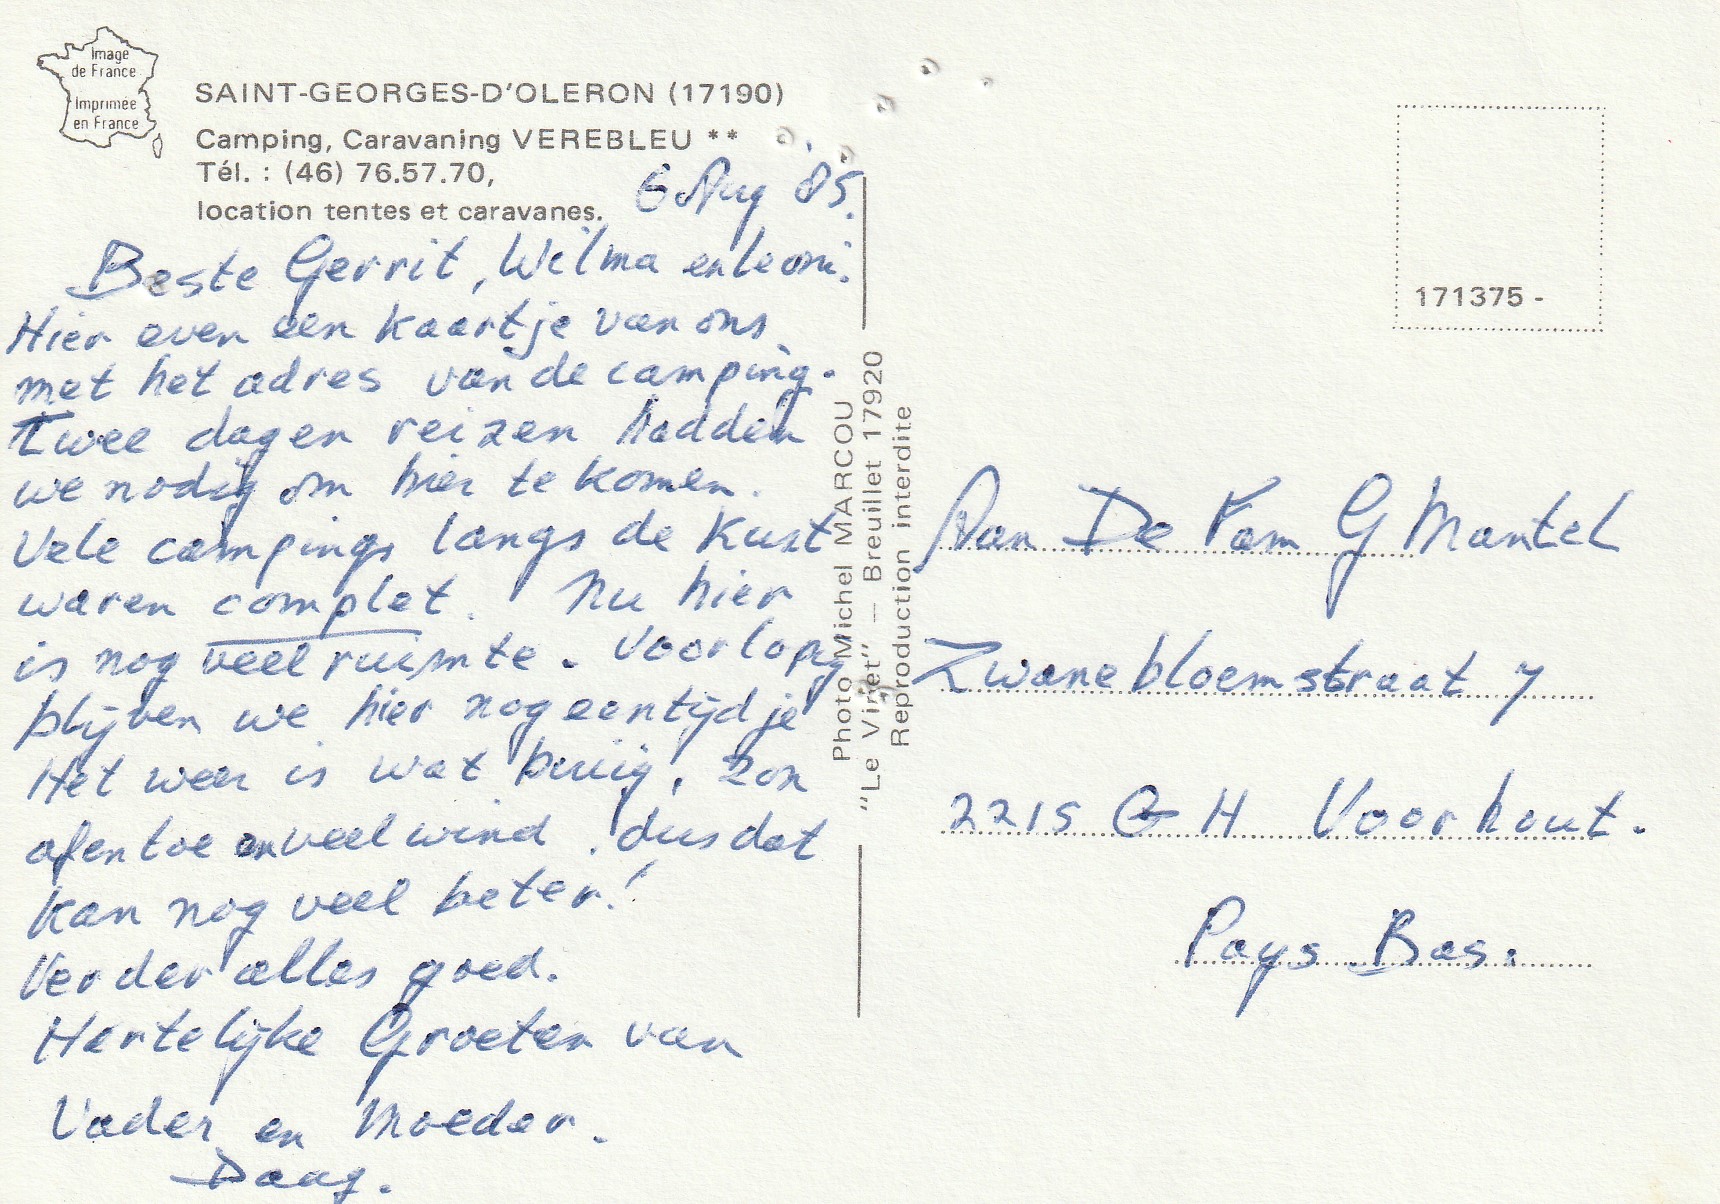 Image
de France
Imprimée
en France
SAINT-GEORGES-D'OLERON (17190)
Camping, Caravaning VEREBLEU **
Tél. : (46) 76.57.70,
location tentes et caravanes.
6 Aug '85.
Beste Gerrit, Wilma en Leoni.
Hier even een kaartje van ons
met het adres van de camping.
Twee dagen reizen hadden
we nodig om hier te komen.
Vele campings langs de kust
waren complet. Nu hier
is nog veel ruimte. Voorlopig
blijven we hier nog een tijdje
Het weer is wat buiig, zon
af en toe en veel wind. dus dat
kan nog veel beter!
Verder alles goed.
Hartelijke Groeten van
Vader en Moeder.
Daag.
Photo Michel MARCOU
"Le Viriet" — Breuillet 17920
Reproduction interdite
171375 -
Aan De Fam G Mantel
Zwanebloemstraat 7
2215 GH Voorhout.
Pays Bas.